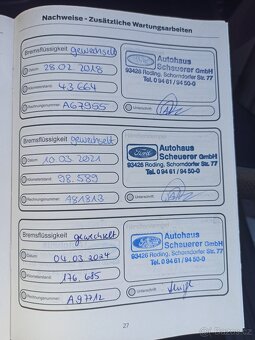 Nachweise - Zusätzliche Wartungsarbeiten
Bremsflüssigkeit gewechselt
Datum
28.02.2018
Kilometerstand
43.664
Rechnungsnummer
A67955
Ford
Autohaus
Scheuerer GmbH
93426 Roding, Schorndorfer Str. 77
Tel. 0 94 61 / 94 50-0
Unterschrift
Bremsflüssigkeit gewechselt
Datum
10.03.2021
Kilometerstand
98.589
Rechnungsnummer
181813
Ford
Autohaus
Scheuerer GmbH
93426 Roding, Schorndorfer Str. 77
Tel. 0 94 61 / 94 50-0
Unterschrift
Bremsflüssigkeit gewechselt
Datum
04.03.2024
Kilometerstand
176.685
Rechnungsnummer
A97712
Ford
Autohaus
Scheuerer GmbH
93426 Roding, Schorndorfer Str. 77
Tel. 0 94 61 / 94 50-0
Unterschrift
27